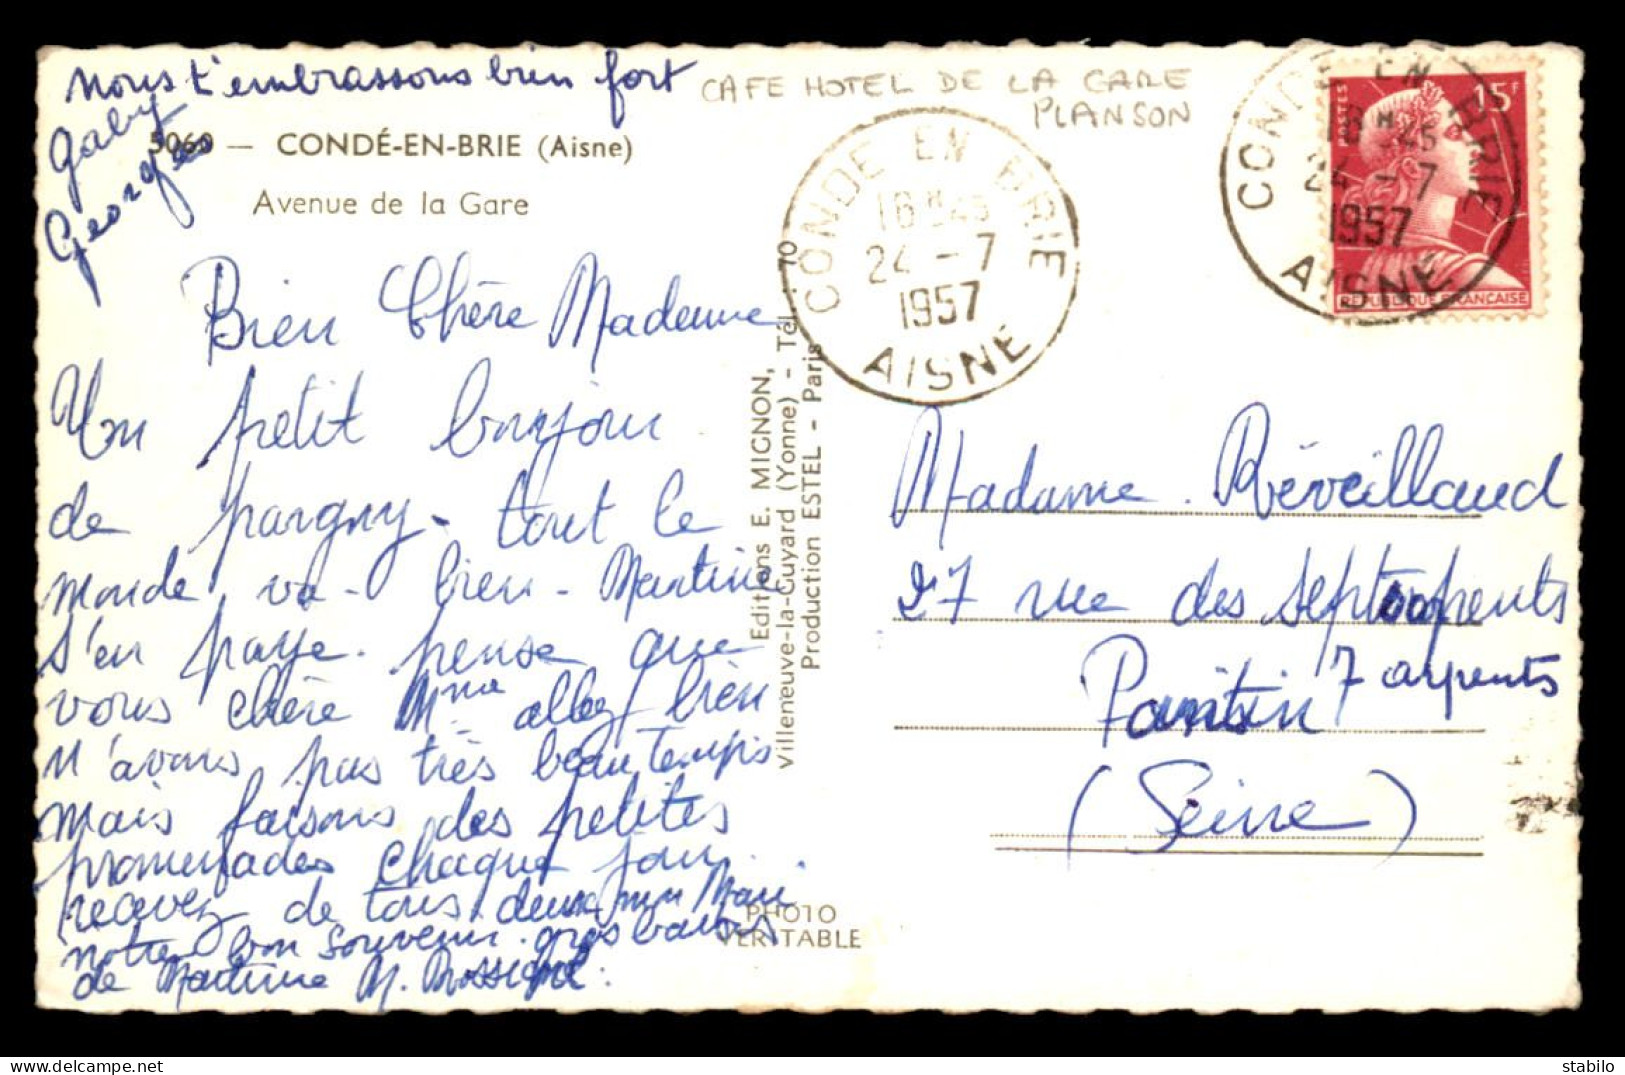 nous t'embrassons bien fort
Gaby
Georges
5060 — CONDÉ-EN-BRIE (Aisne)
Avenue de la Gare
CAFE HOTEL DE LA GARE
PLANSON
Bien Chère Madame
Un petit bonjour
de pargny - tout le
monde va - bien - Martine
s'en paye. pense que
vous chère Mme allez bien
n'avons pas très beau temps
mais faisons des petites
promenades chaque jour
recevez de tous deux mon Mari
notre bon souvenir. gros baisers
de Martine M.
Editions E. MIGNON,
Villeneuve-la-Guyard (Yonne) - Tél. : 70
Production ESTEL - Paris
PHOTO
VÉRITABLE
CONDE EN BRIE
16H45
24 - 7
1957
AISNE
CONDE EN BRIE
16H45
24 - 7
1957
AISNE
POSTES
15F
REPUBLIQUE FRANÇAISE
Madame Réveillaud
27 rue des
7 arpents
Pantin
(Seine)
delcampe.net
stabilo